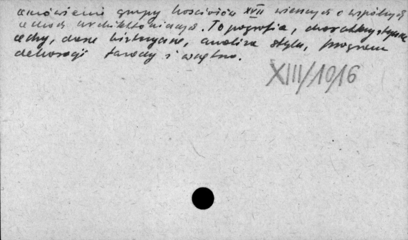 omówienie grupy kościołów XVII wiecznych o wspólnych
cechach architektonicznych. Topografia, charakterystyczne
cechy, dane historyczne, analiza stylu, program
dekoracji fasady i wnętrza.
XIII/1916